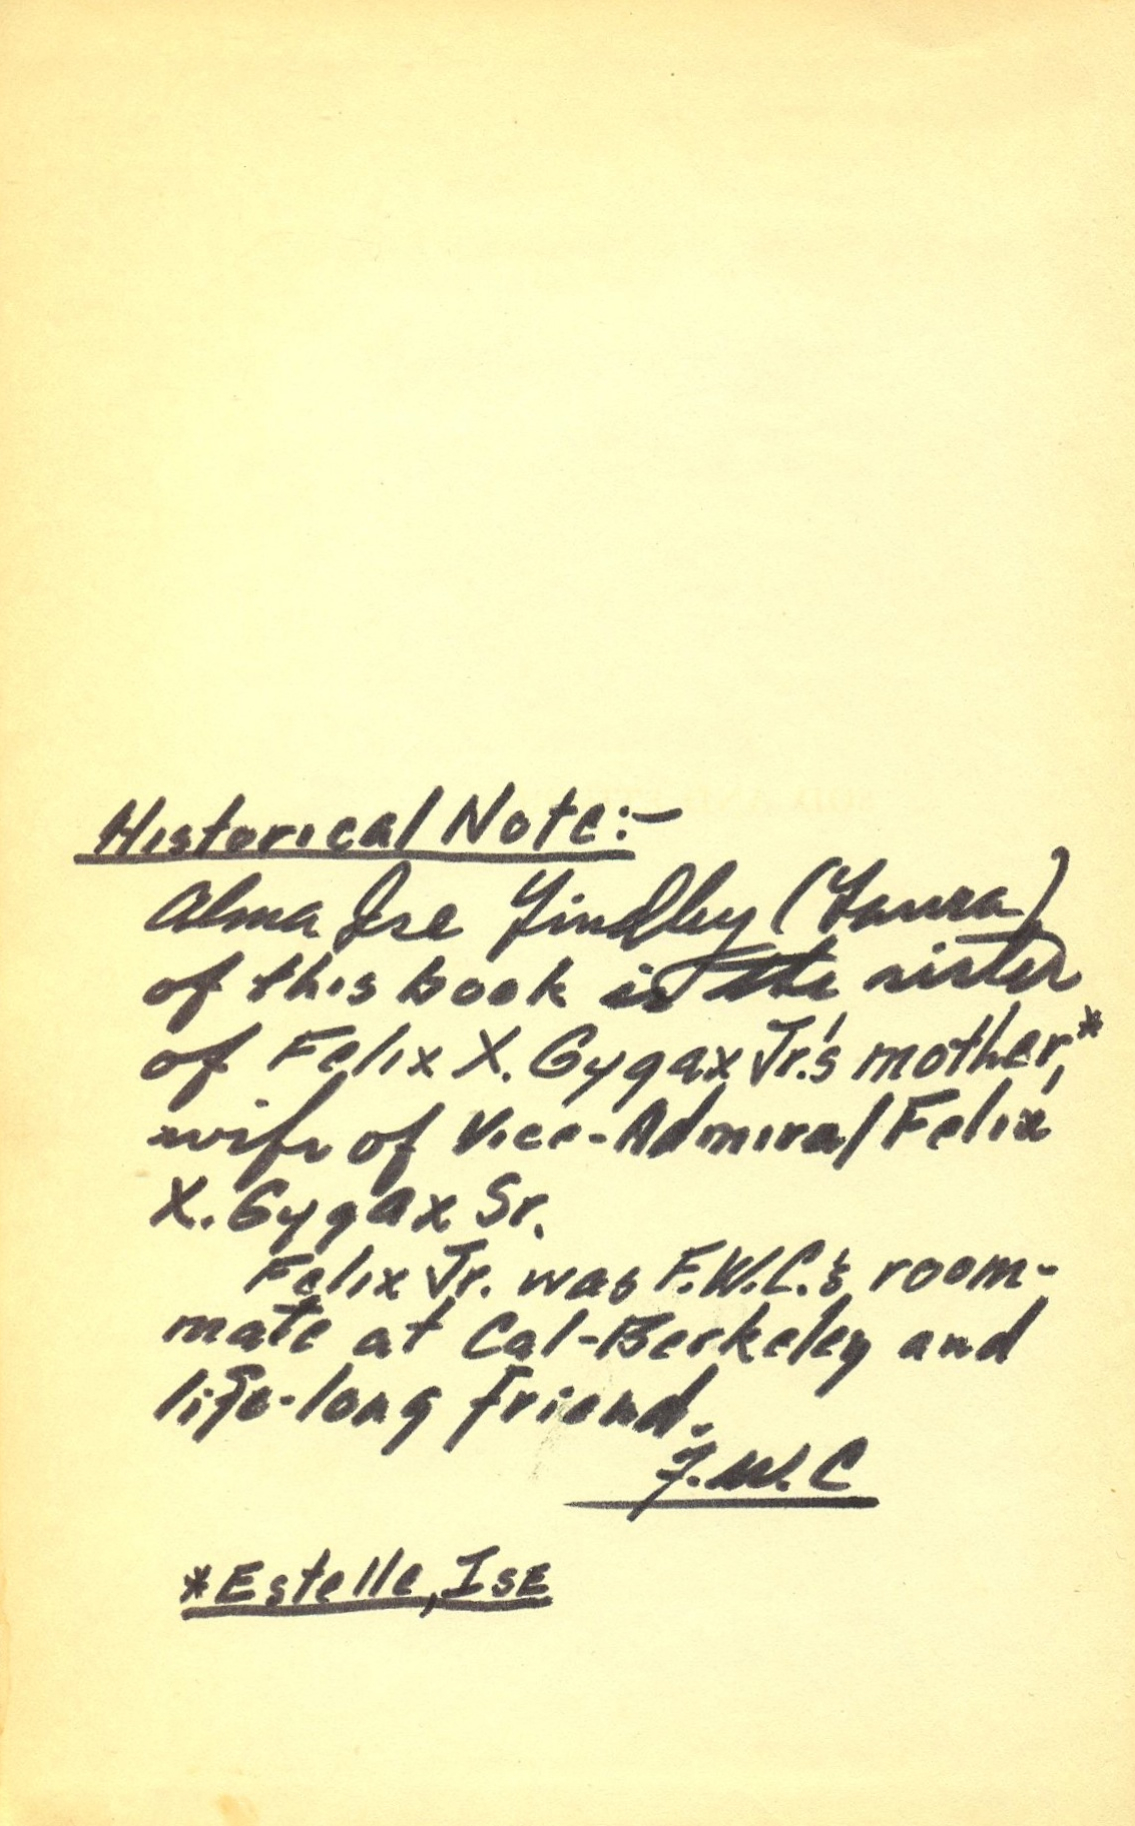 Historical Note:-
Alma Ise Findley (Laura)
of this book is the sister
of Felix X. Gygax Jr.'s mother,*
wife of Vice-Admiral Felix
X. Gygax Sr.
Felix Jr. was F.W.C.'s room-
mate at Cal-Berkeley and
life-long friend.
F.W.C
*Estelle, Ise